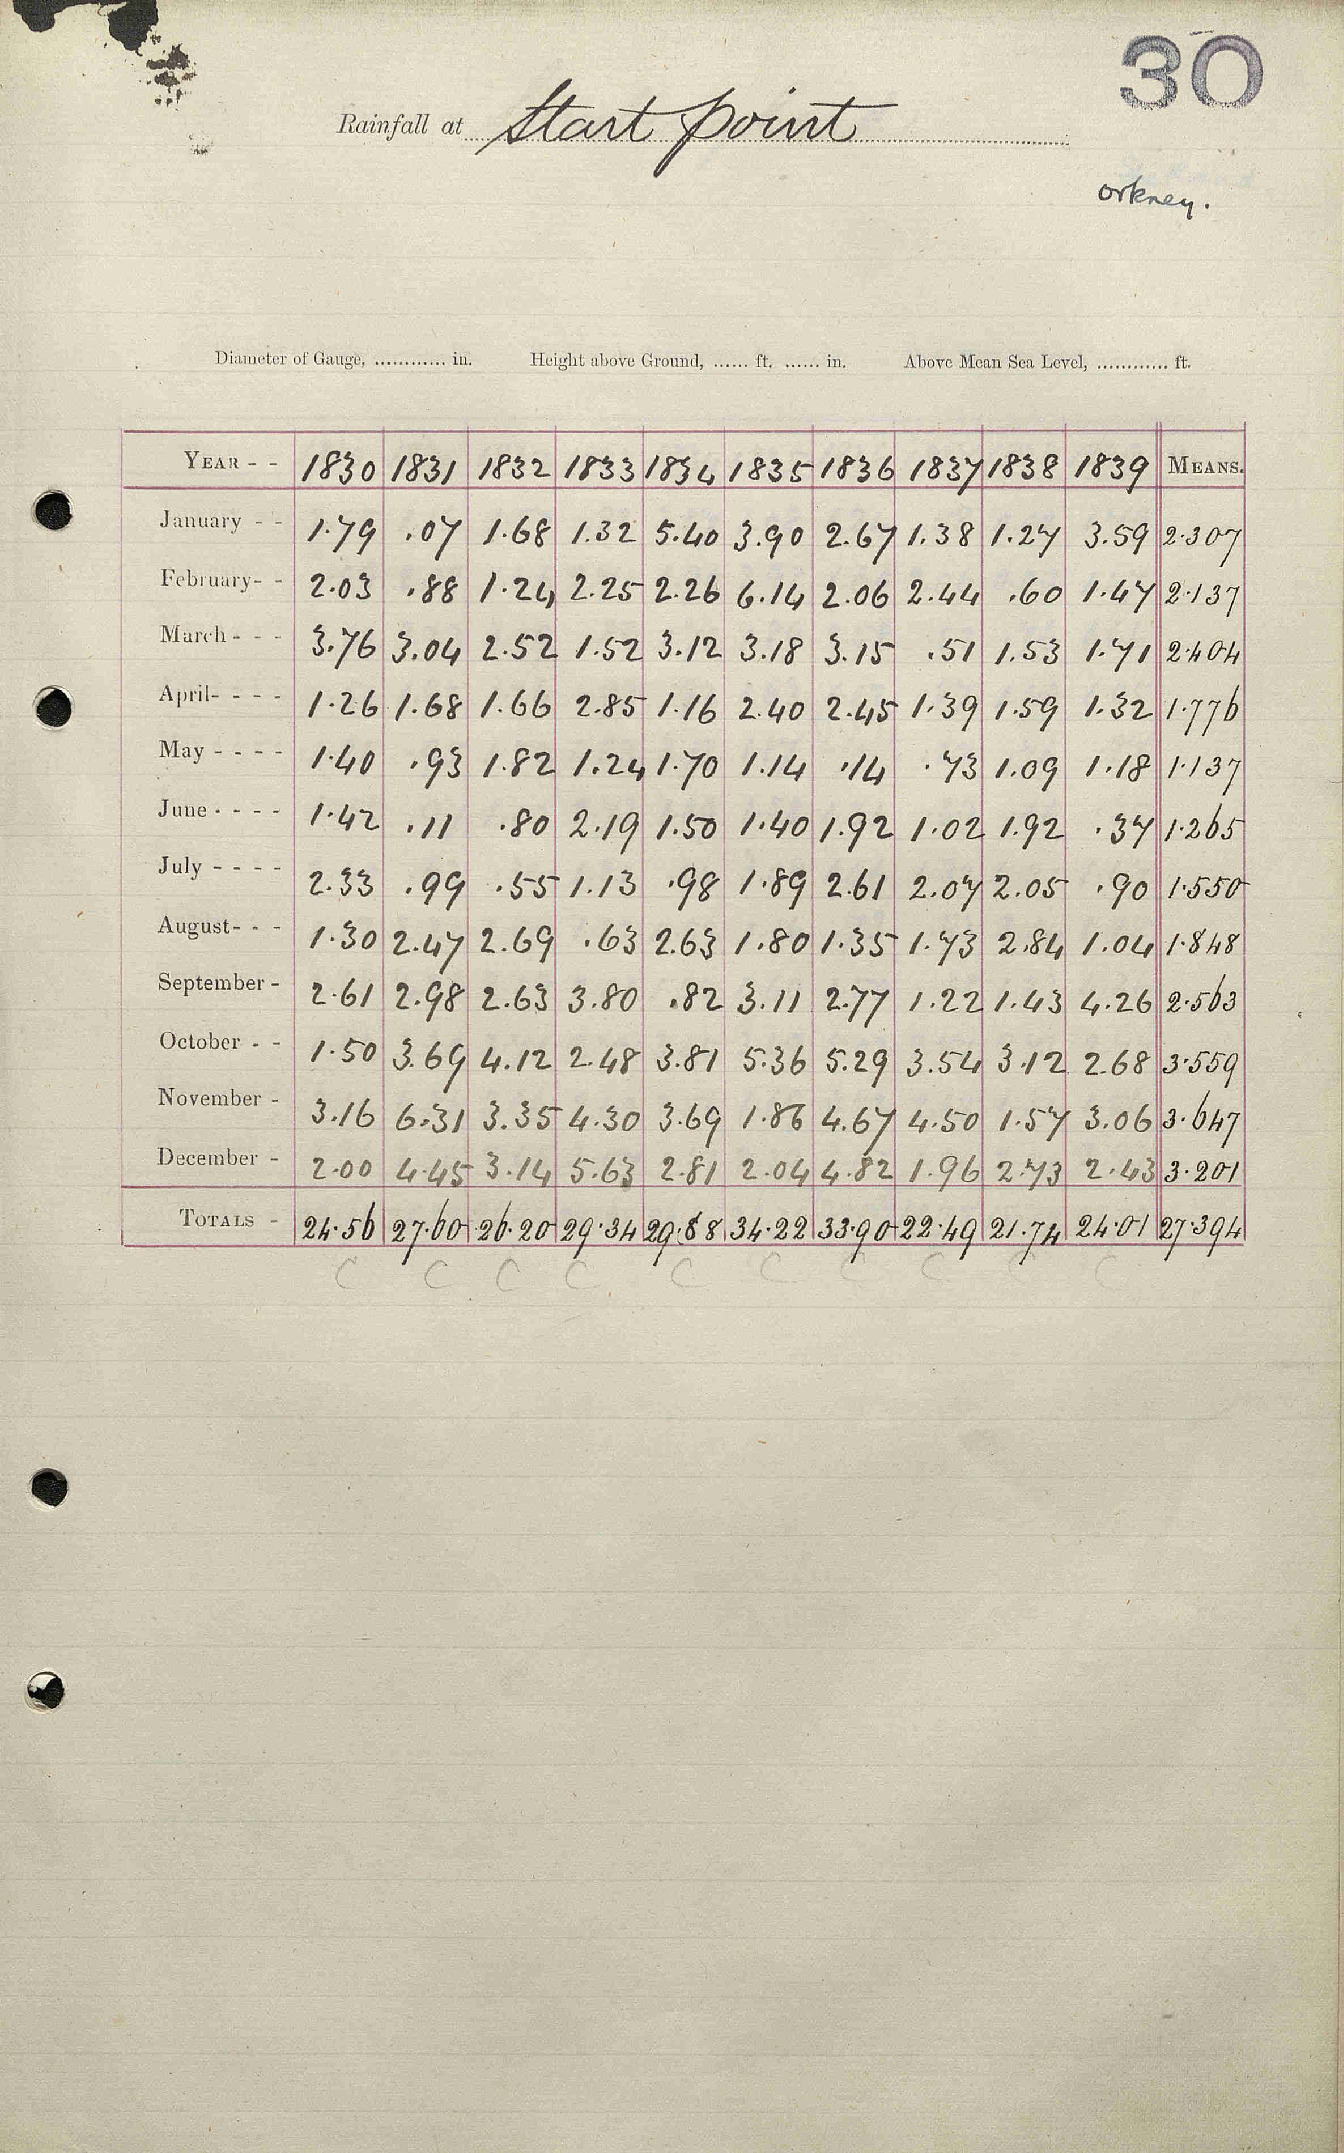 30
Rainfall at Start point
Orkney.
Diameter of Gauge, ............ in. Height above Ground, ...... ft. ...... in. Above Mean Sea Level, ............ ft.
YEAR - - 1830 1831 1832 1833 1834 1835 1836 1837 1838 1839 MEANS.
January - - 1.79 .07 1.68 1.32 5.40 3.90 2.67 1.38 1.27 3.59 2.307
February- - 2.03 .88 1.24 2.25 2.26 6.14 2.06 2.44 .60 1.47 2.137
March - - - 3.76 3.04 2.52 1.52 3.12 3.18 3.15 .51 1.53 1.71 2.404
April- - - - 1.26 1.68 1.66 2.85 1.16 2.40 2.45 1.39 1.59 1.32 1.776
May - - - - 1.40 .93 1.82 1.24 1.70 1.14 .14 .73 1.09 1.18 1.137
June - - - - 1.42 .11 .80 2.19 1.50 1.40 1.92 1.02 1.92 .37 1.265
July - - - - 2.33 .99 .55 1.13 .98 1.89 2.61 2.07 2.05 .90 1.550
August- - - 1.30 2.47 2.69 .63 2.63 1.80 1.35 1.73 2.84 1.04 1.848
September - 2.61 2.98 2.63 3.80 .82 3.11 2.77 1.22 1.43 4.26 2.563
October - - 1.50 3.69 4.12 2.48 3.81 5.36 5.29 3.54 3.12 2.68 3.559
November - 3.16 6.31 3.35 4.30 3.69 1.86 4.67 4.50 1.57 3.06 3.647
December - 2.00 4.45 3.14 5.63 2.81 2.04 4.82 1.96 2.73 2.43 3.201
TOTALS - 24.56 27.60 26.20 29.34 29.88 34.22 33.90 22.49 21.74 24.01 27.394
C C C C C C C C C C